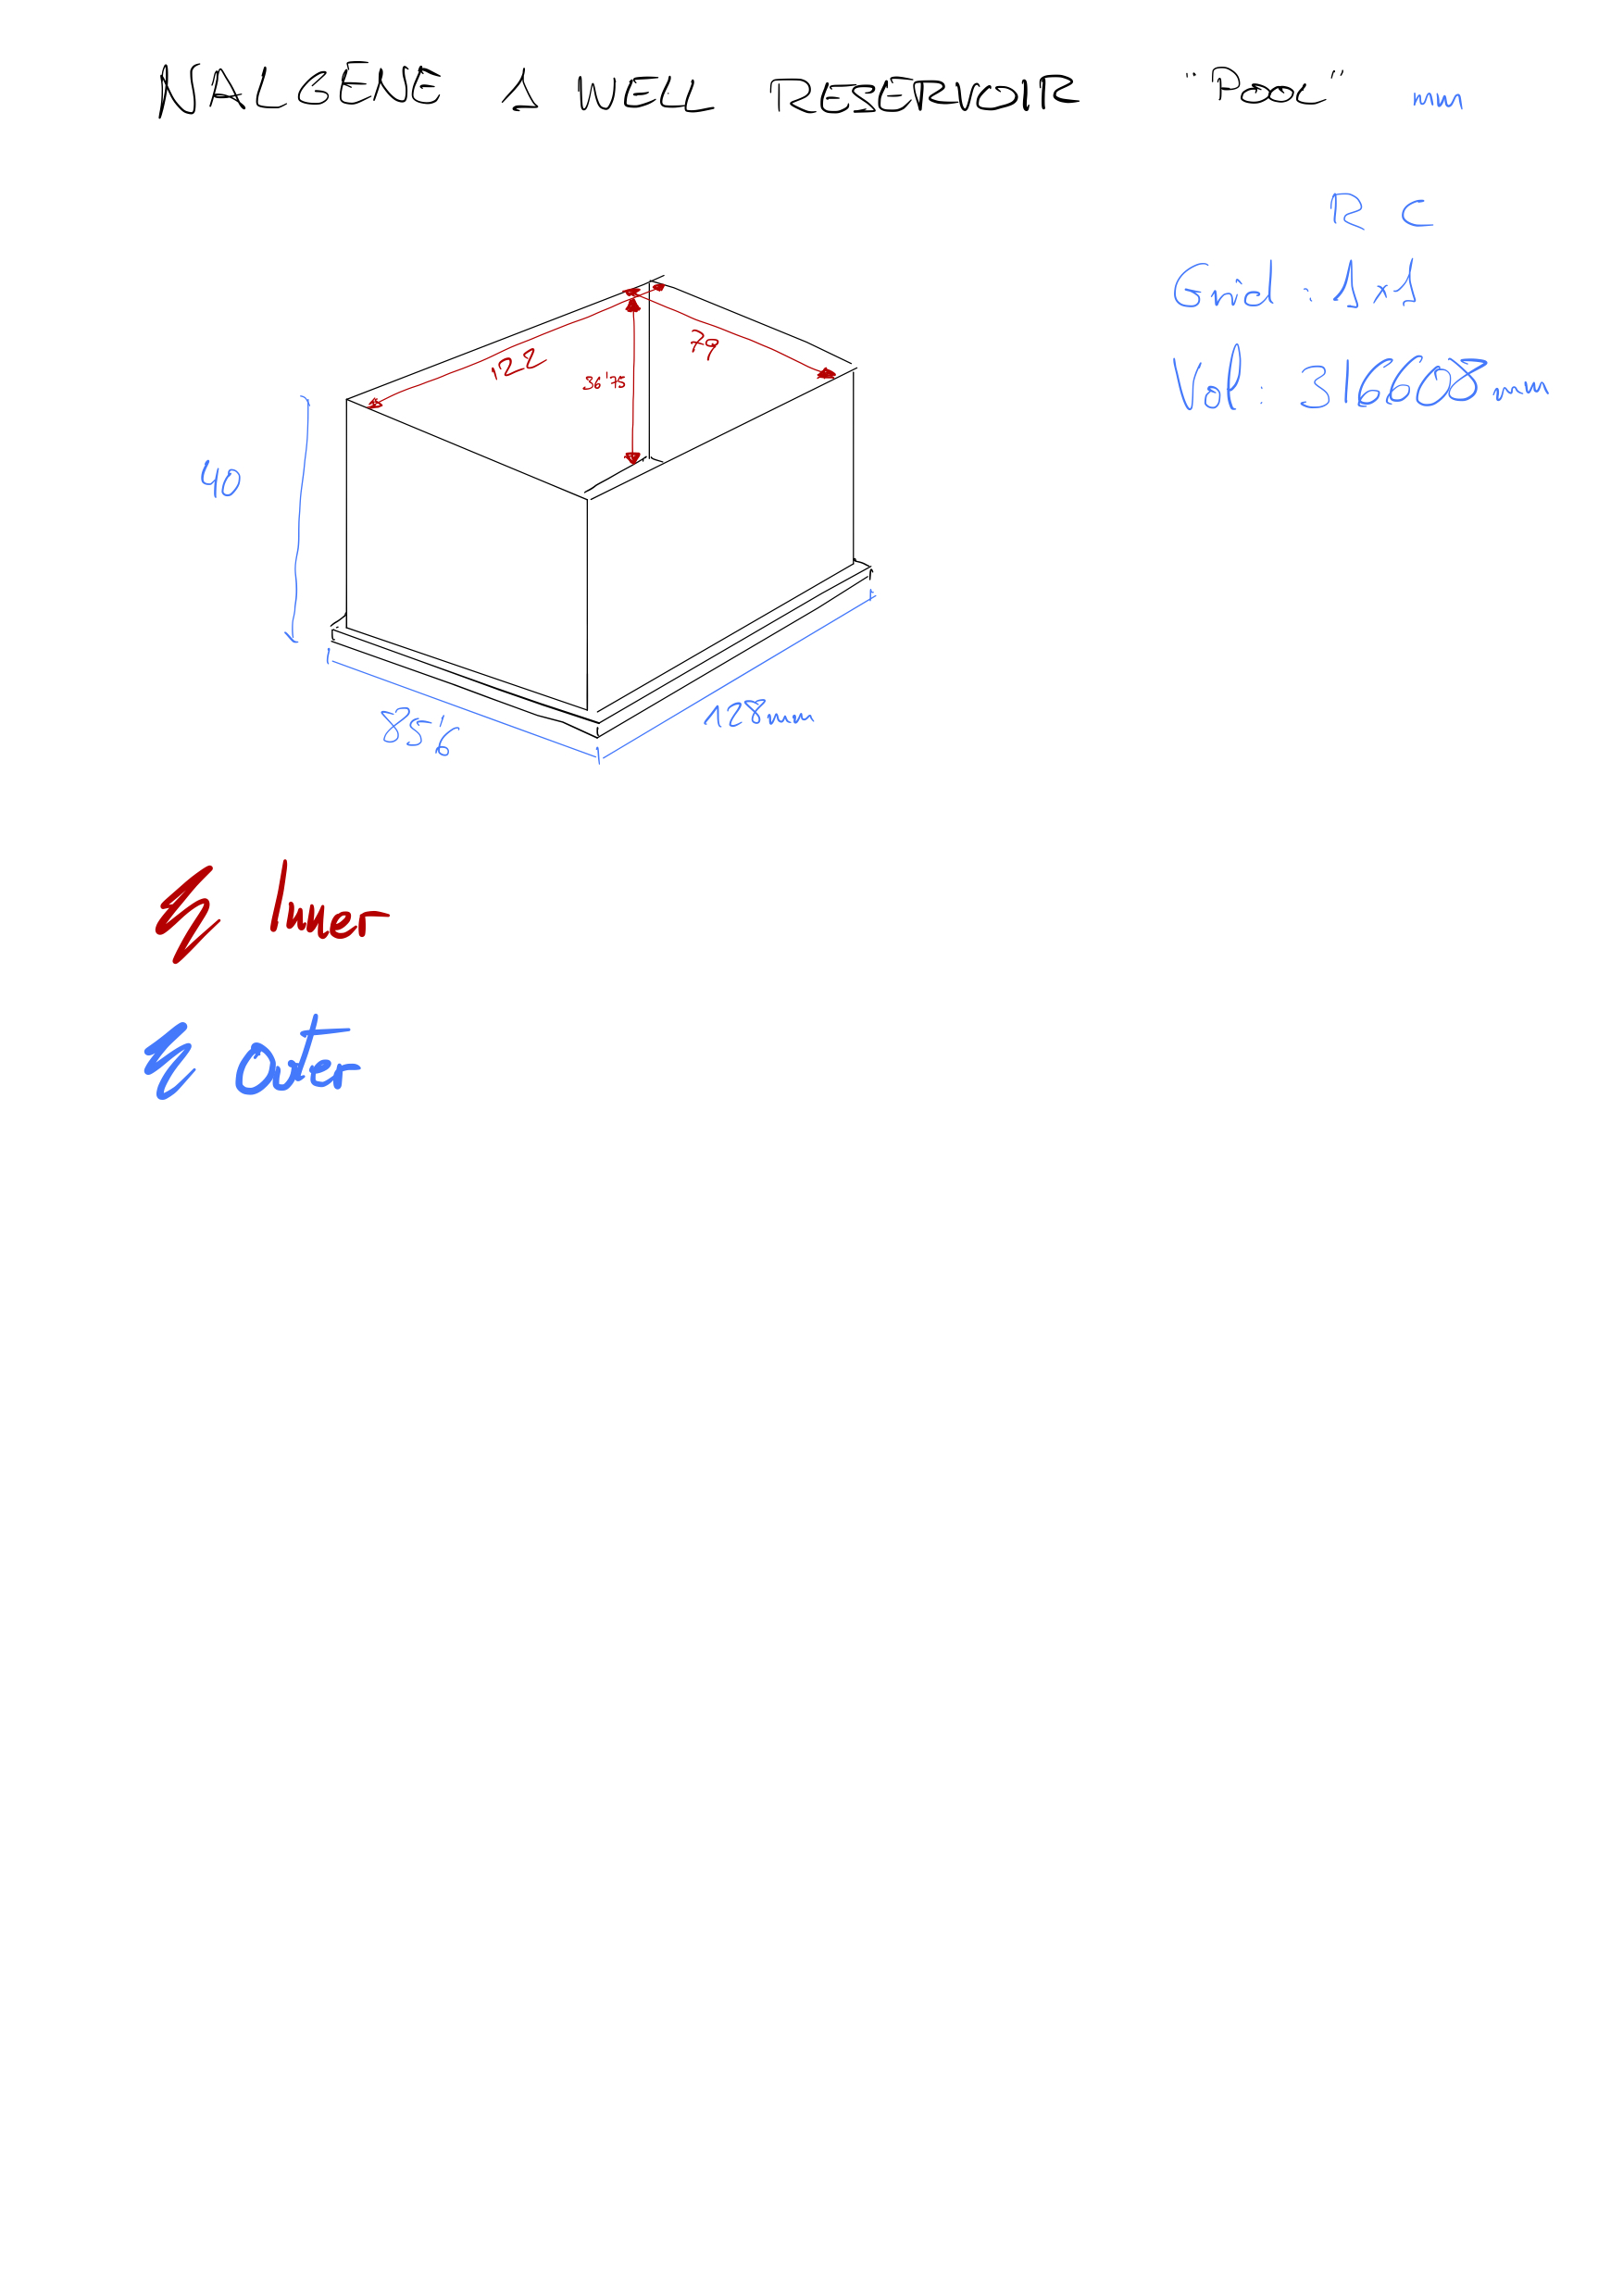 NALGENE 1 WELL RESERVOIR "POOL" mm
R C
Grid : 1x1
Vol : 316608 mm
122
79
36'75
40
85'6
128mm
Inner
Outer